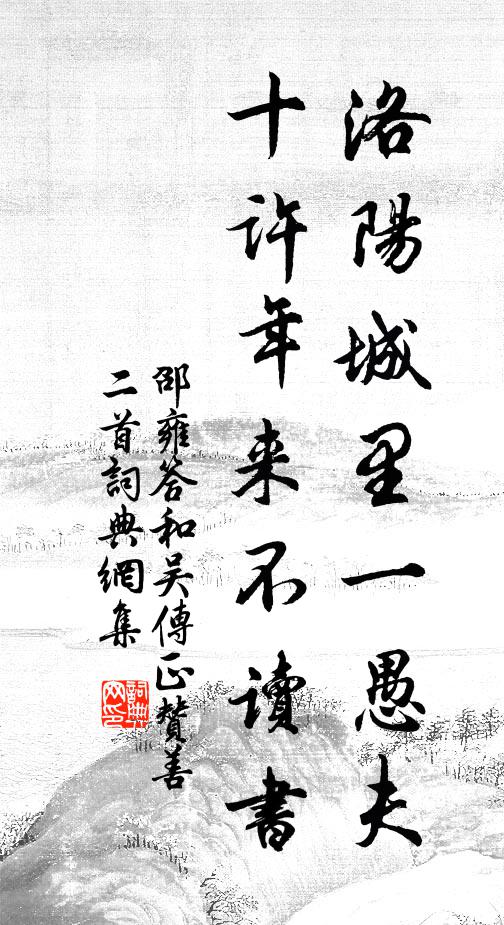 洛陽城里一愚夫
十許年来不讀書
邵雍答和吳傳正贊善
二首詞典網集
詞典
网印